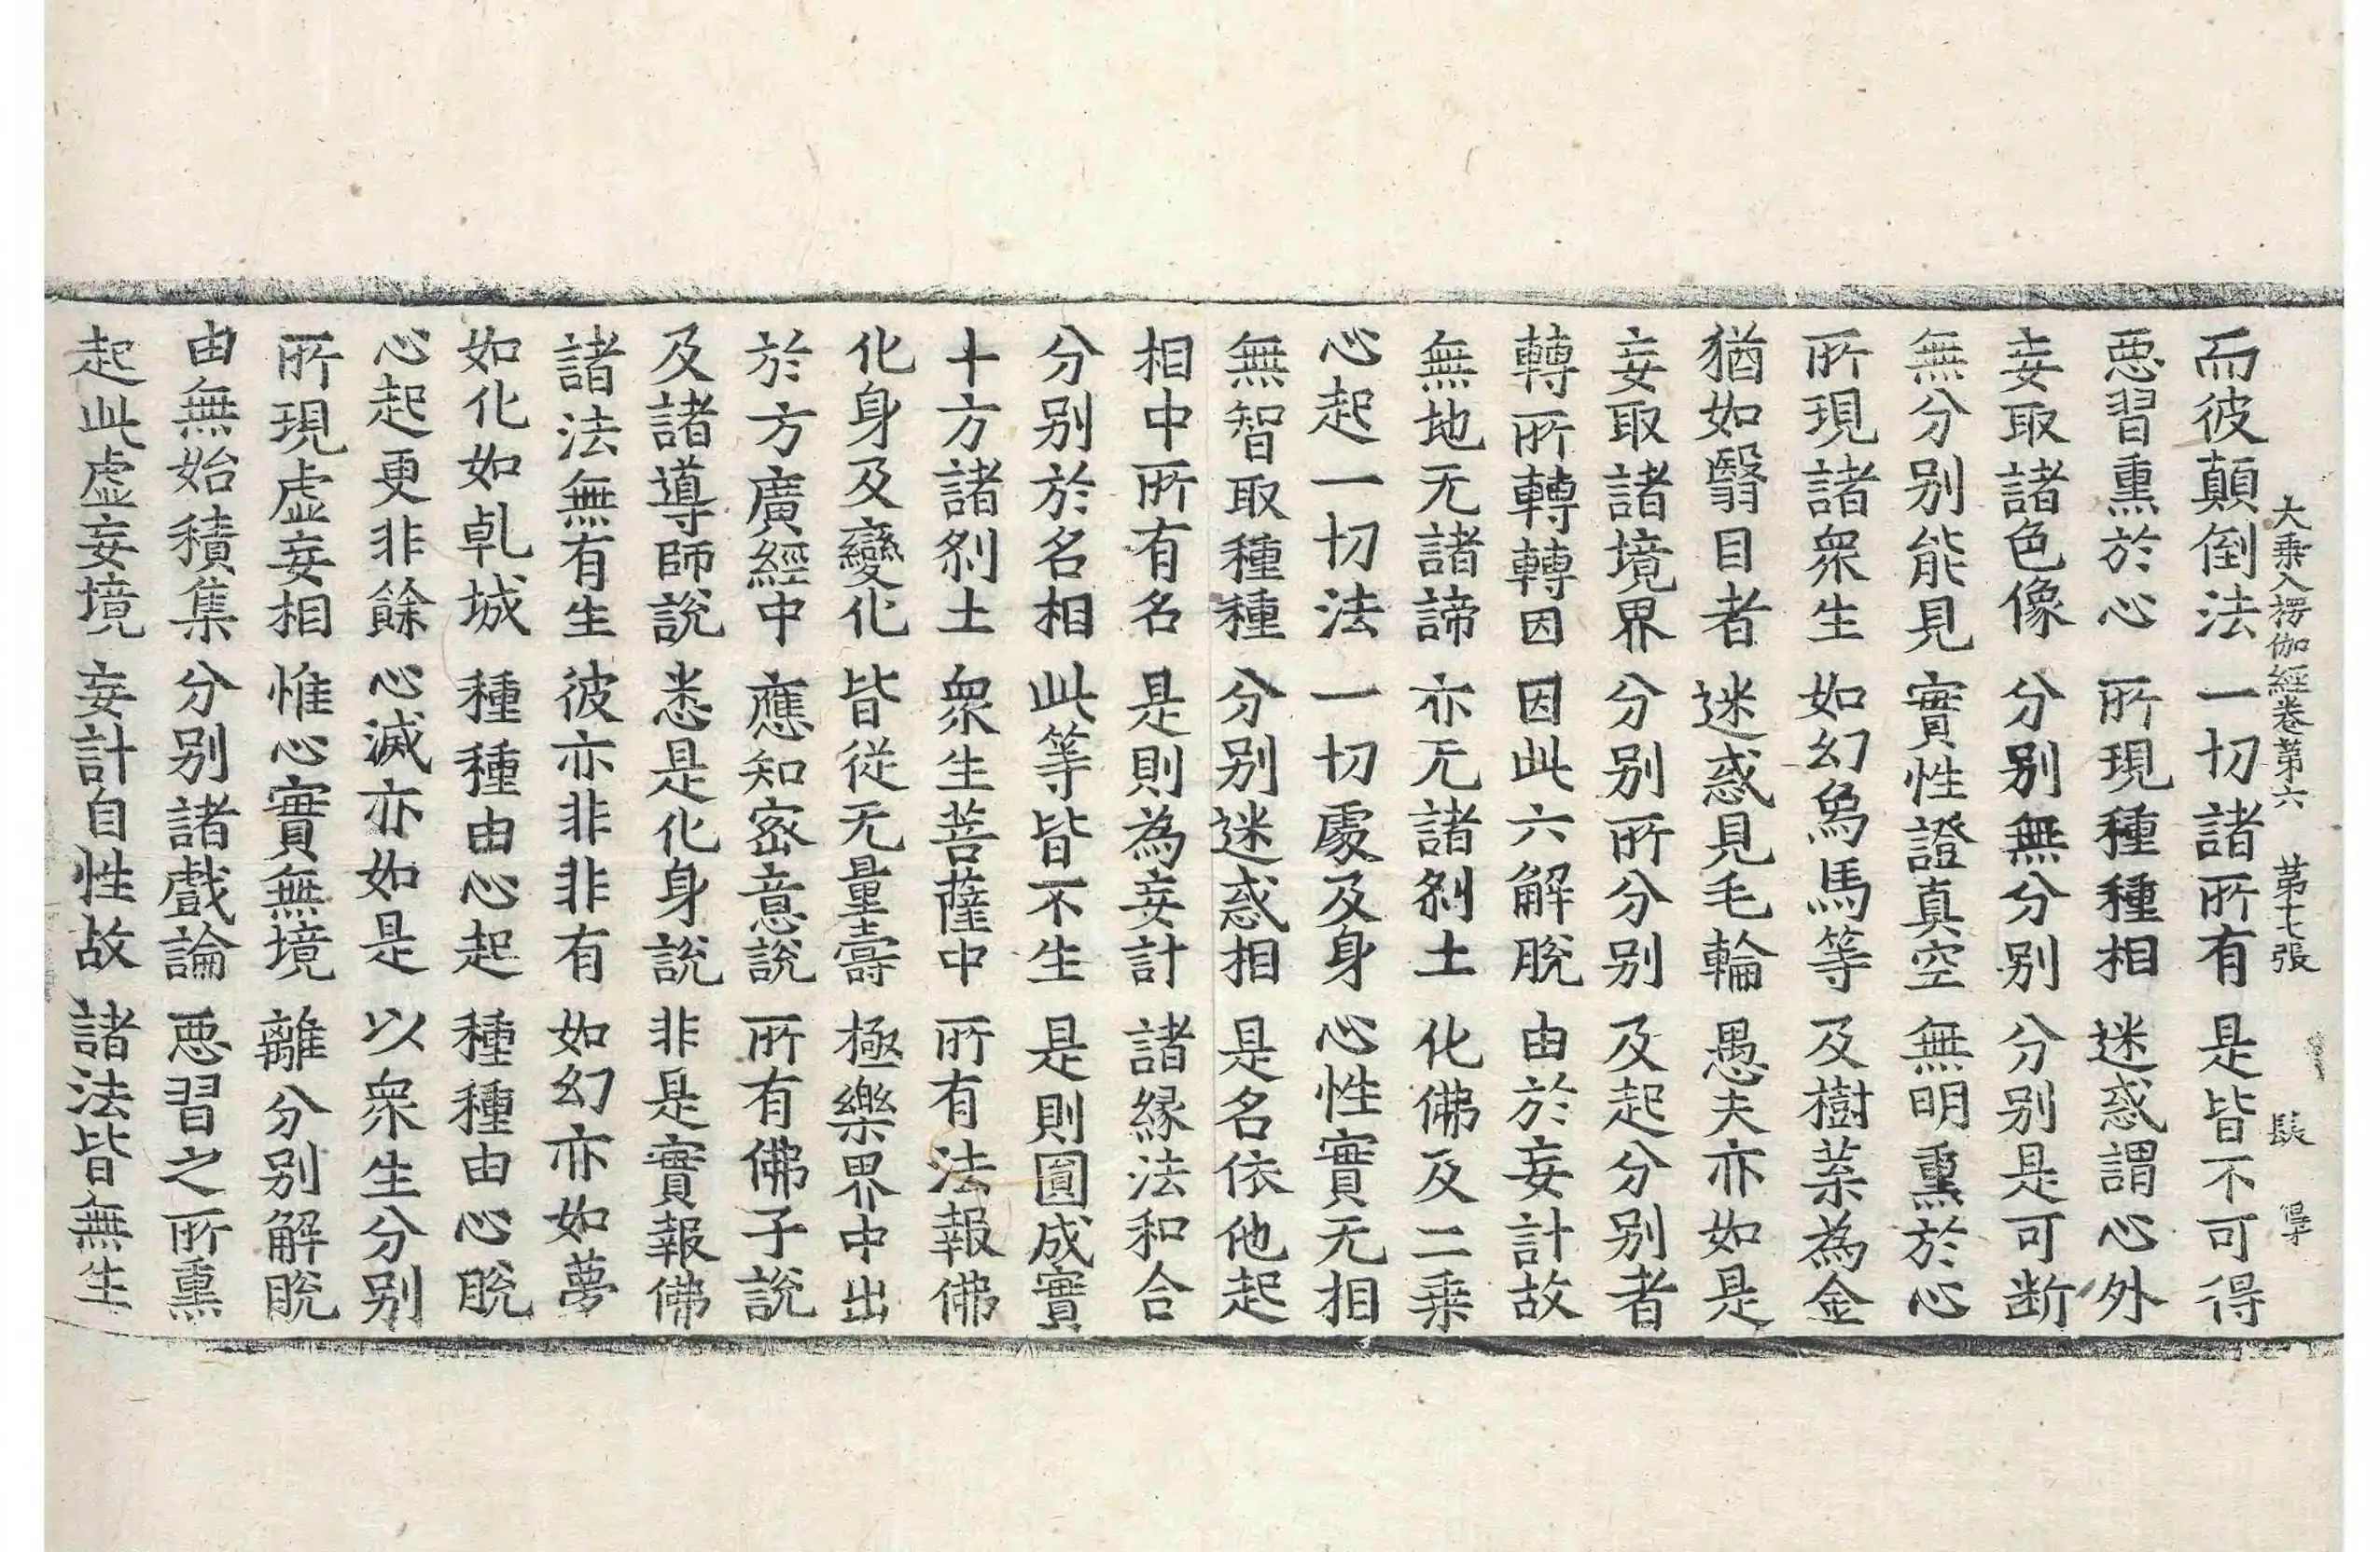 大乗入楞伽經卷第六 苐七張 長
而彼顛倒法 一切諸所有 是皆不可得
惡習熏於心 所現種種相 迷惑謂心外
妄取諸色像 分别無分别 分别是可断
無分别能見 實性證真空 無明熏於心
所現諸衆生 如幻象馬等 及樹葉為金
猶如翳目者 迷惑見毛輪 愚夫亦如是
妄取諸境界 分别所分别 及起分别者
轉所轉轉因 因此六解脫 由於妄計故
無地无諸諦 亦无諸刹土 化佛及二乗
心起一切法 一切處及身 心性實无相
無智取種種 分别迷惑相 是名依他起
相中所有名 是則為妄計 諸緣法和合
分别於名相 此等皆不生 是則圓成實
十方諸刹土 衆生菩薩中 所有法報佛
化身及變化 皆從无量壽 極樂界中出
於方廣經中 應知密意說 所有佛子說
及諸導師說 悉是化身說 非是實報佛
諸法無有生 彼亦非非有 如幻亦如夢
如化如乹城 種種由心起 種種由心脫
心起更非餘 心滅亦如是 以衆生分别
所現虛妄相 惟心實無境 離分别解脫
由無始積集 分别諸戲論 惡習之所熏
起此虛妄境 妄計自性故 諸法皆無生